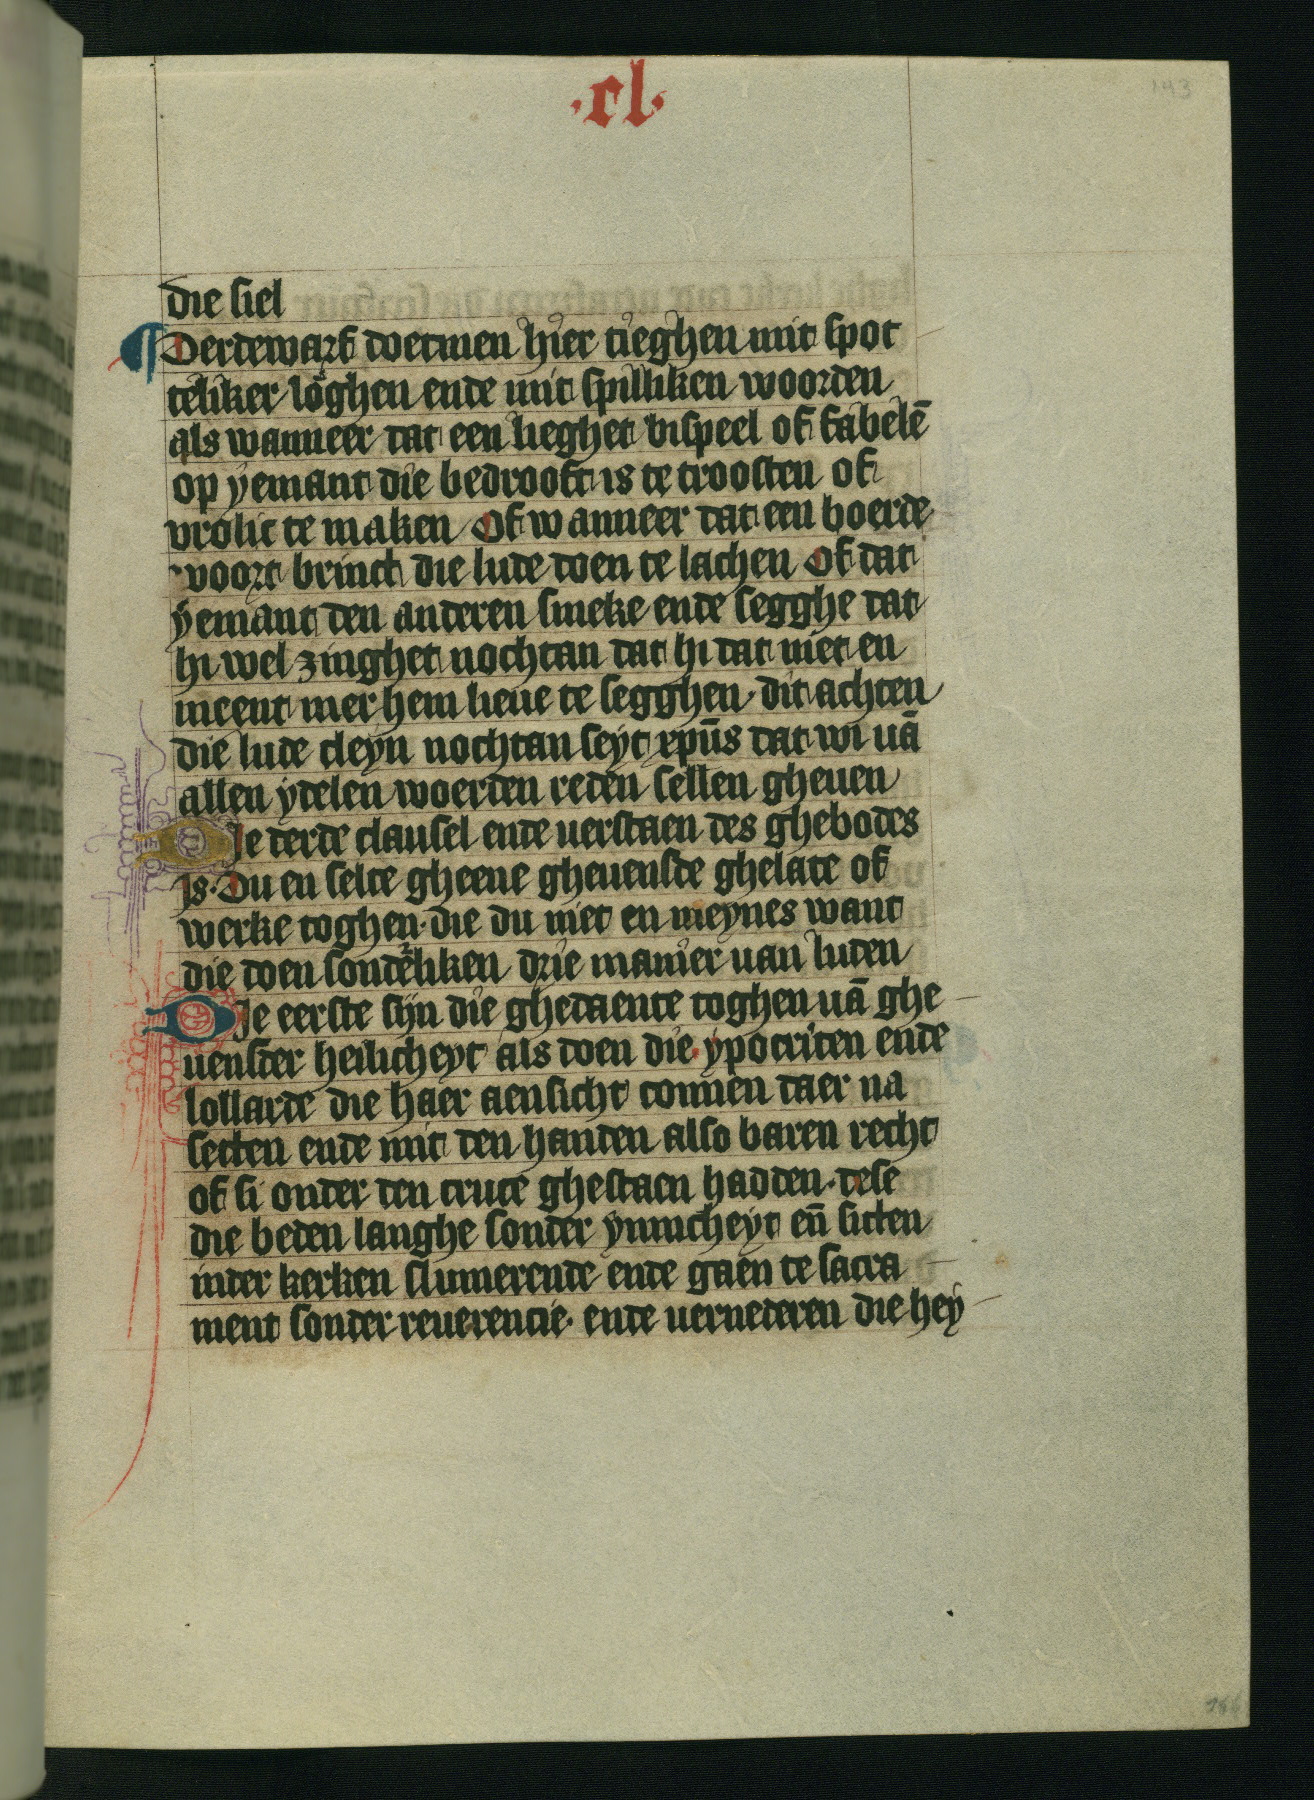 .cl.
143
die siel
¶ Derdewarf doetmen hier tieghen mit spot
teliker loghen ende mit spilliken woorden
als wanneer dat een lieghet bispeel of fabelē
op yemant die bedrooft is te troosten of
vrolic te maken Of wanneer dat een boerde
voort brinct die lude doen te lachen Of dat
yemant den anderen smeke ende segghe dat
hi wel zinghet nochtan dat hi dat niet en
meent mer hem lieue te segghen· dit achten
die lude cleyn nochtan seyt xpūs dat wi uā
allen ydelen woerden reden sellen gheuen
Die derde clausel ende uerstaen des ghebodes
is· Du en selte gheene gheuensde ghelate of
werke toghen· die du niet en meynes want
die doen sonderliken drie manier uan luden
Die eerste sijn die ghedaente toghen uā ghe
uensder heilicheyt als doen die ypocriten ende
lollarde die haer aensicht connen daer na
setten ende mit den handen also baren recht
of si onder den cruce ghestaen hadden· dese
die beden langhe sonder ynnicheyt eñ sitten
inder kerken slumerende ende gaen te sacra
ment sonder reuerencie· ende uernederen die hey